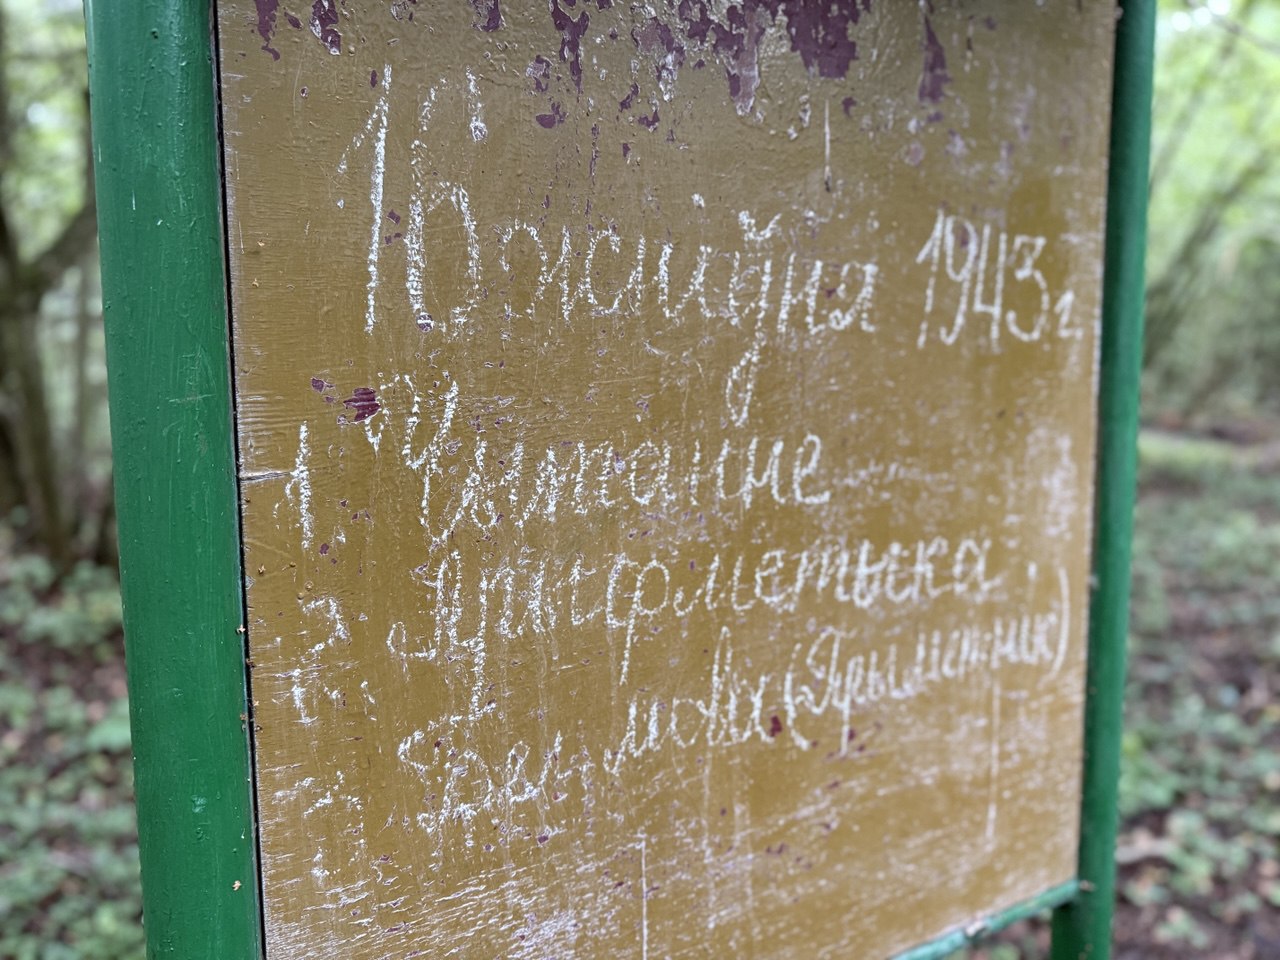 16 жніўня 1943 г.
1. Чытанне
2. Арыфметыка.
3. Бел. мова (Прыметнік)